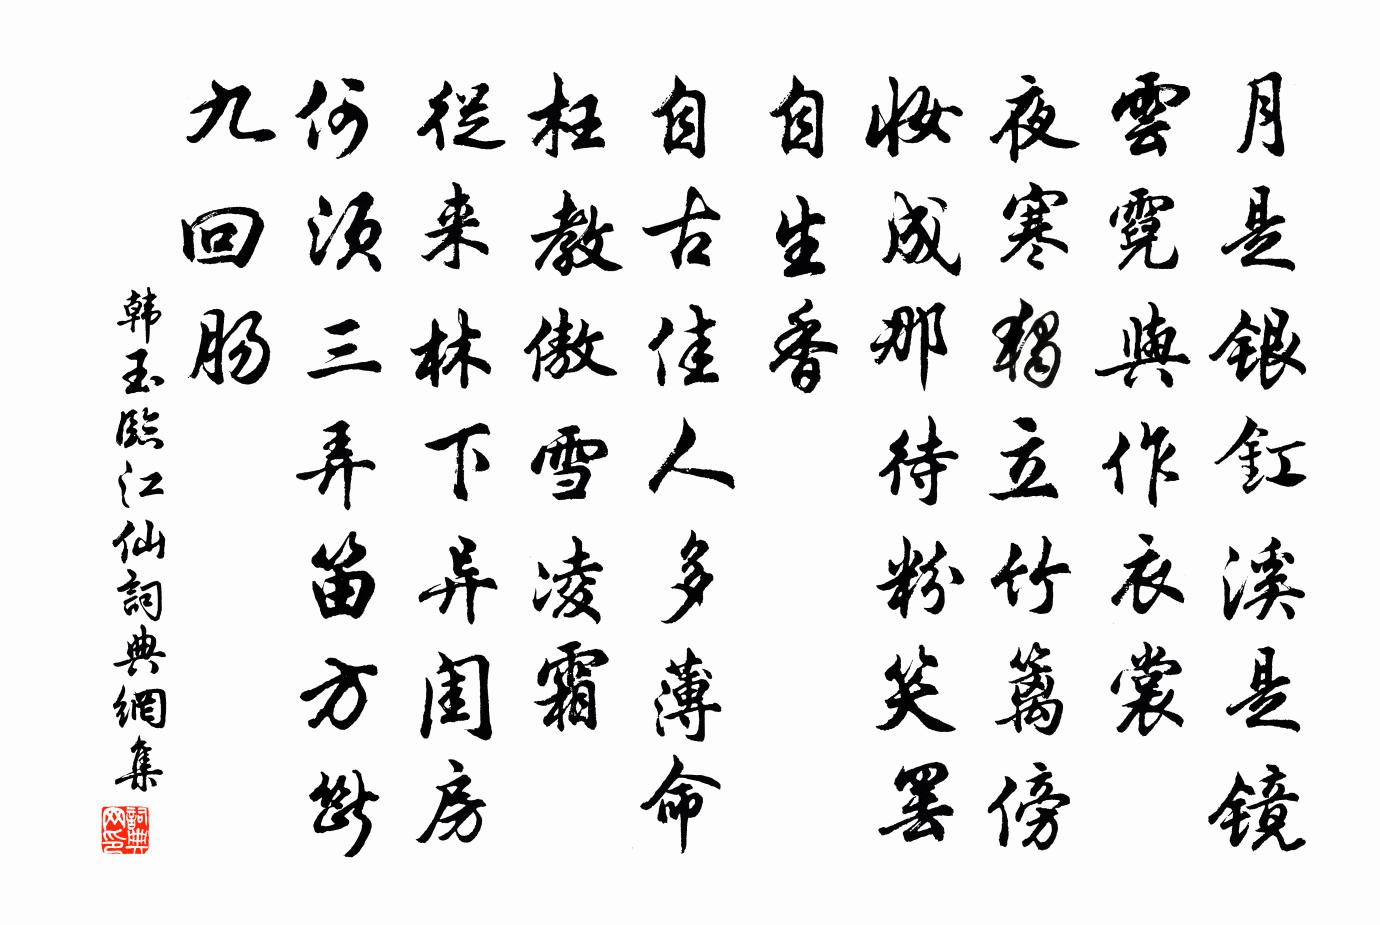 月是銀釭溪是镜
雲霓與作衣裳
夜寒獨立竹篱傍
妝成那待粉笑罢
自生香
自古佳人多薄命
枉教傲雪凌霜
從来林下异闺房
何须三弄笛方斷
九回肠
韩玉臨江仙詞典網集
詞典
网印